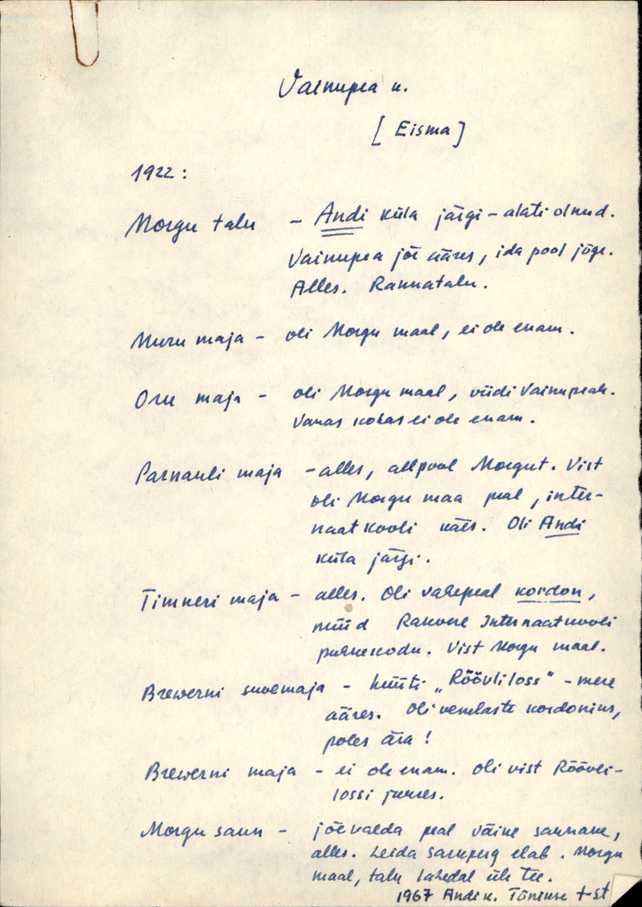 Vainupea k.
[Eisma]
1922:
Morgu talu - Andi küla järgi - alati olnud.
Vainupea jõe ääres, ida pool jõge.
Alles. Rannatalu.
Muru maja - oli Morgu maal, ei ole enam.
Oru maja - oli Morgu maal, viidi Vainupeale.
Vanas kohas ei ole enam.
Parnauli maja - alles, allpool Morgut. Vist
oli Morgu maa peal, inter-
naatkooli käes. Oli Andi
küla järgi.
Timneri maja - alles. Oli vahepeal kordon,
nüüd Rakvere Internaatkooli
puhkekodu. Vist Morgu maal.
Brewerni suvemaja - hüüti "Röövliloss" - mere
ääres. Oli venelaste kordonins,
põles ära!
Brewerni maja - ei ole enam. Oli vist Röövli-
lossi juures.
Morgu saun - jõevalda peal väike saunake,
alles. Leida elab. Morgu
maal, talu lähedal üle tee.
1967 Andi k. Tõnise t-st